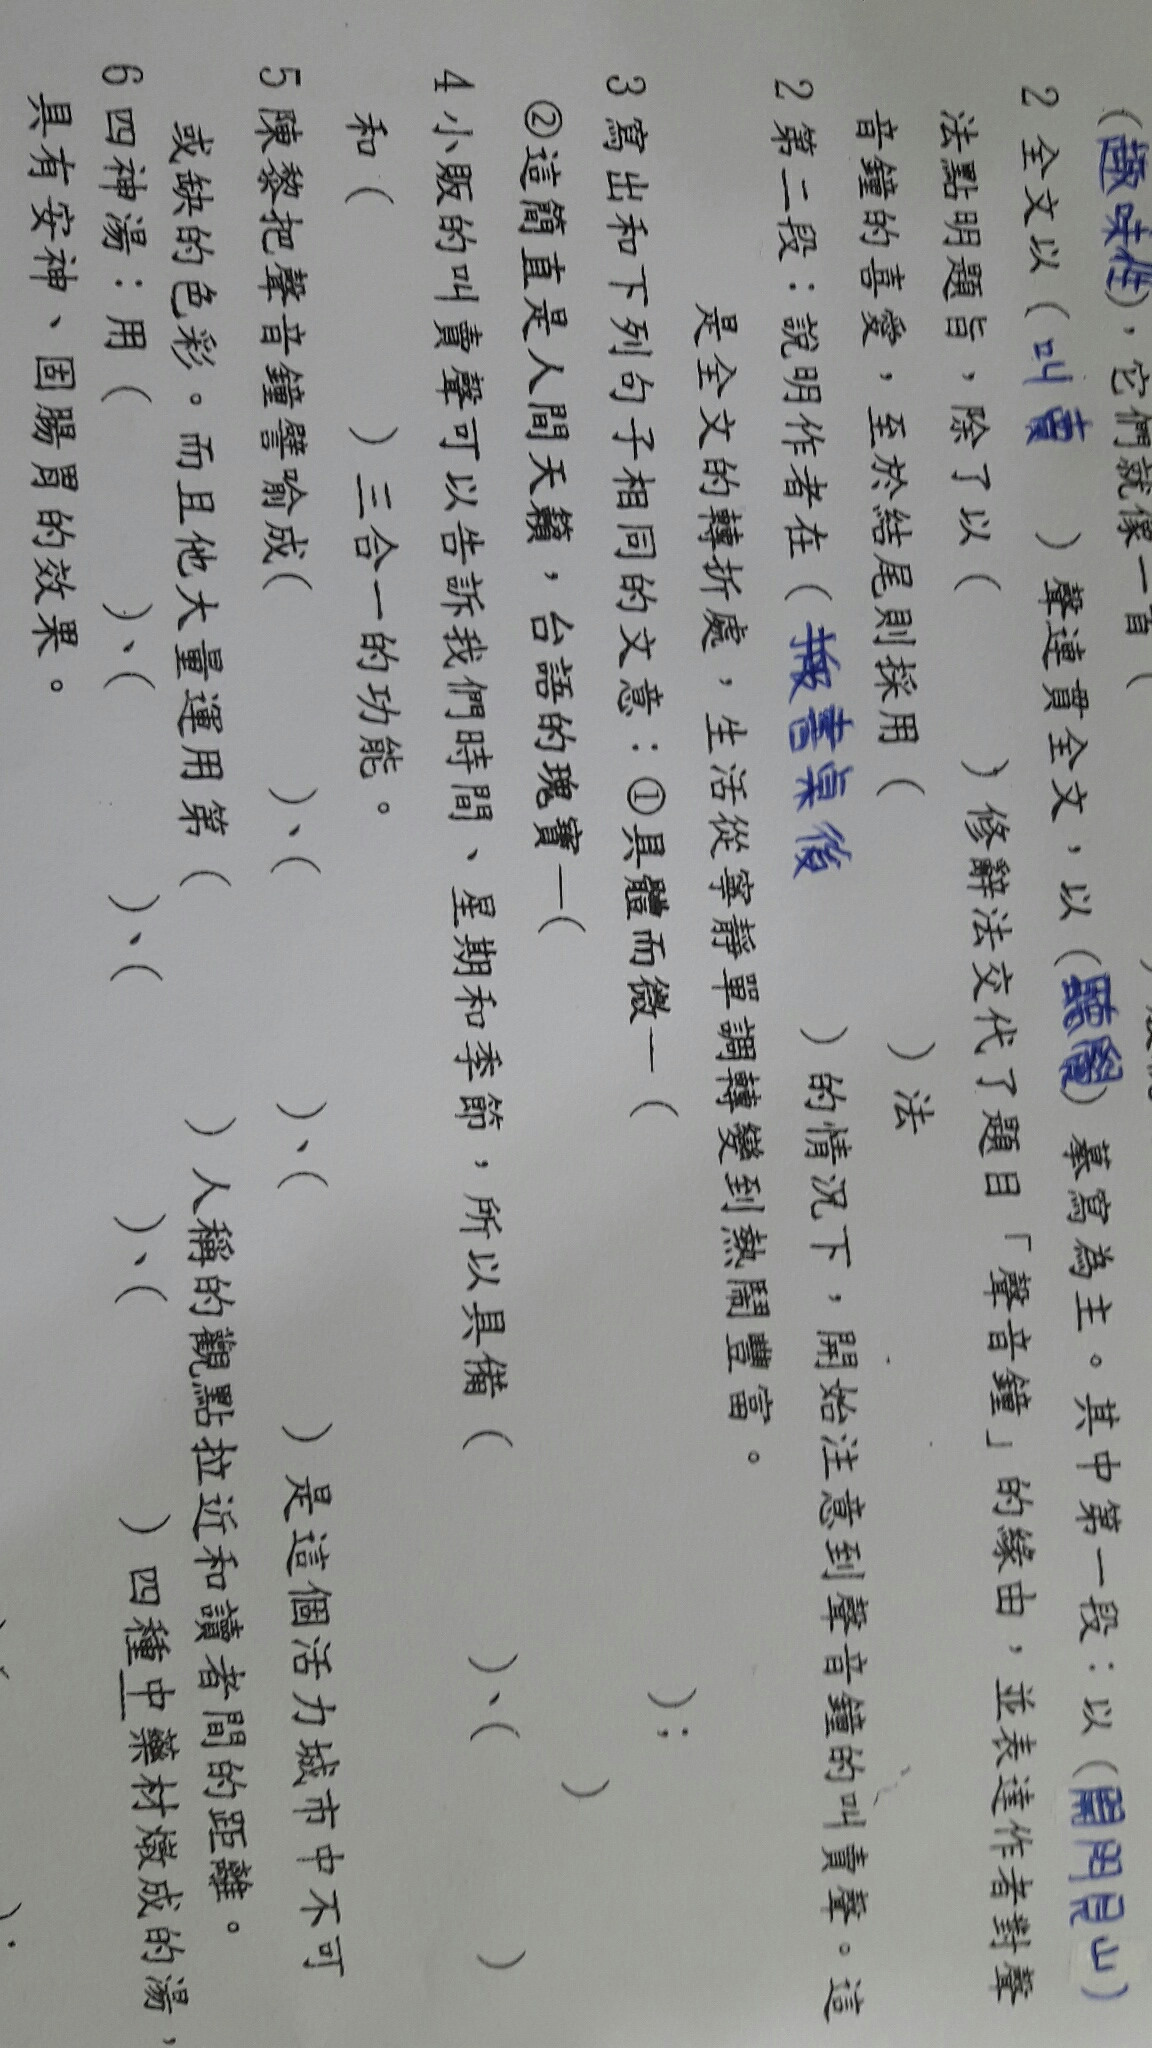 (趣味性)，它們就像一首(
2 全文以(叫賣 )聲連貫全文，以(聽覺)摹寫為主。其中第一段：以(開門見山)
法點明題旨，除了以( )修辭法交代了題目「聲音鐘」的緣由，並表達作者對聲
音鐘的喜愛，至於結尾則採用( )法
2 第二段：說明作者在(搬書桌後 )的情況下，開始注意到聲音鐘的叫賣聲。這
是全文的轉折處，生活從寧靜單調轉變到熱鬧豐富。
3 寫出和下列句子相同的文意：①具體而微—( )；
②這簡直是人間天籟，台語的瑰寶—( )
4 小販的叫賣聲可以告訴我們時間、星期和季節，所以具備( )、( )
和( )三合一的功能。
5 陳黎把聲音鐘譬喻成( )、( )、( )是這個活力城市中不可
或缺的色彩。而且他大量運用第( )人稱的觀點拉近和讀者間的距離。
6 四神湯：用( )、( )、( )、( )四種中藥材燉成的湯，
具有安神、固腸胃的效果。